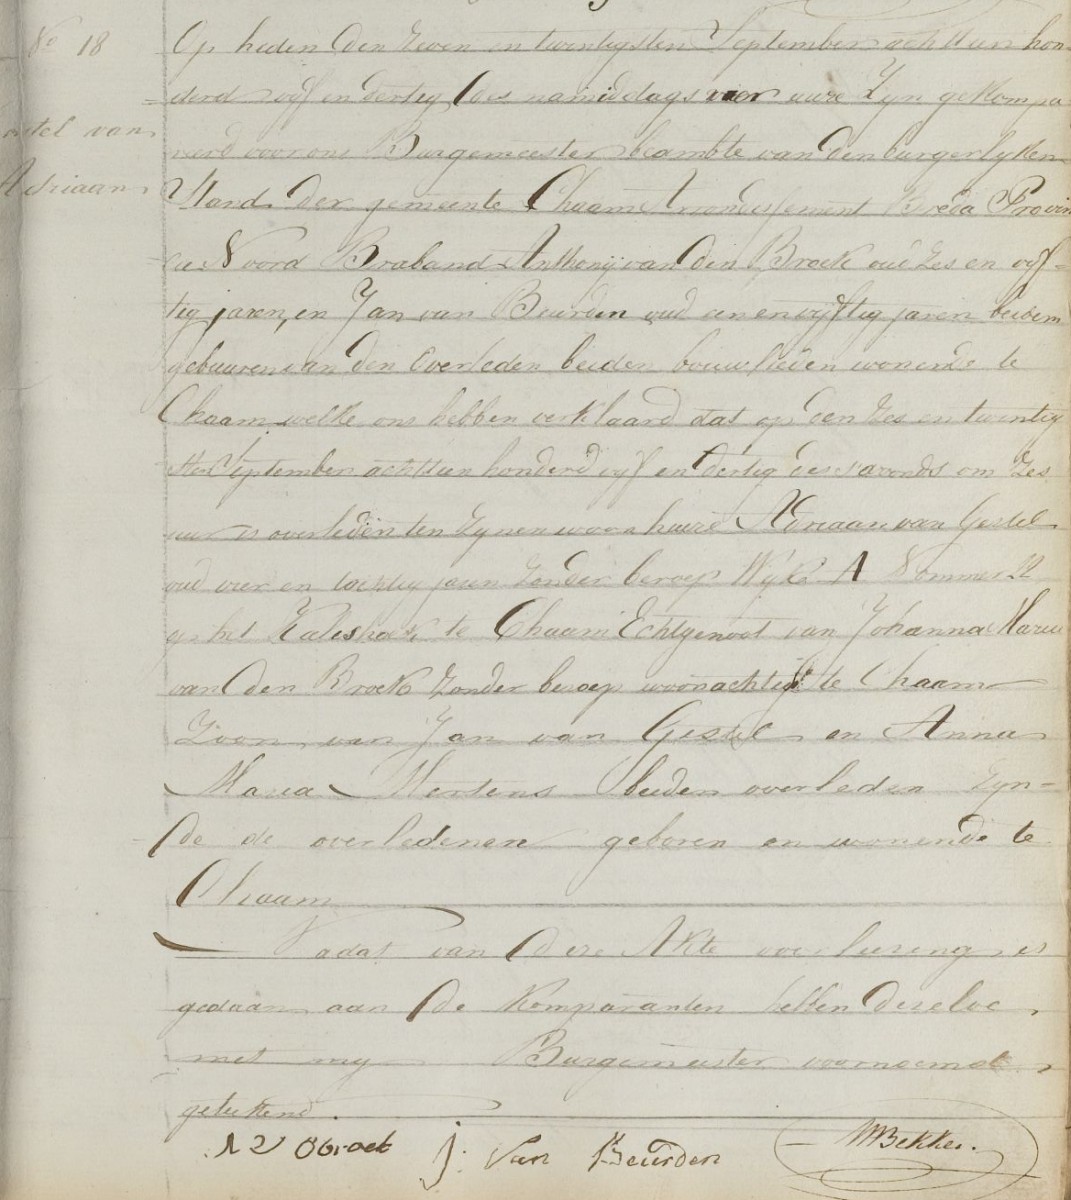 No 18
Op heden den zeven en twintigsten September achttien hon
derd vyf en dertig des namiddags vier ure Zyn gekompa
reerd voor ons Burgemeester beambte van den burgerlyken
Stand der gemeente Chaam Arrondissement Breda Provin
cie Noord Braband Anthonij van den Broek oud zes en vyf
tig jaren, en Jan van Beurden oud een en vyftig jaren beiden
gebuuren van den Overleden beiden bouwlieden wonende te
Chaam welke ons hebben verklaard dat op den zes en twintig
sten September achttien honderd vyf en dertig des avonds om zes
uur is overleden ten zynen woonhuize Adriaan van Gestel
oud vier en tachtig jaren zonder beroep Wyk A Nommer
te Chaam Echtgenoot van Johanna Maria
van den Broek zonder beroep woonachtig te Chaam
Zoon van Jan van Gestel en Anna
Maria Mertens beiden overleden Zyn-
de de overledenen geboren en wonende te
Chaam
Nadat van deze Akte voorleezing is
gedaan aan de Komparanten hebben dezelve
met my Burgemeester voornoemd
getekend.
estel van
Adriaan
A V Broek
J. Van Beurden
MBekker.